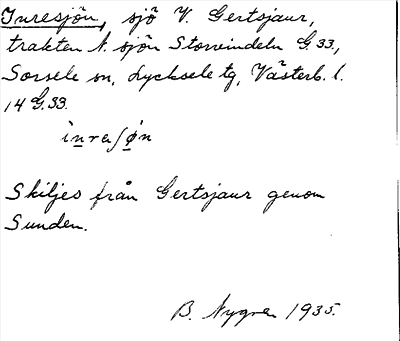 Inresjön, sjö V. Gertsjaur,
trakten N. sjön Storvindeln G.33.,
Sorsele sn, Lycksele tg, Västerb. l.
14 G.33.
i̇nresjøn
Skiljes från Gertsjaur genom
Sunden.
B. Nygren 1935.